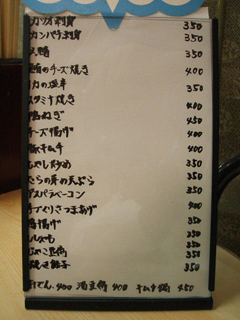 カツオ刺身 350
カンパチ刺身 350
350
チーズ焼き 400
イカの塩辛 350
スタミナ焼き 400
ねぎ 450
チーズ揚げ 400
豚キムチ 400
もやし炒め 350
たらの芽の天ぷら 350
アスパラベーコン 350
手づくりさつまあげ 400
揚げ 350
350
じゃこ豆腐 350
焼き餃子 350
おでん 400 湯豆腐 400 キムチ鍋 450